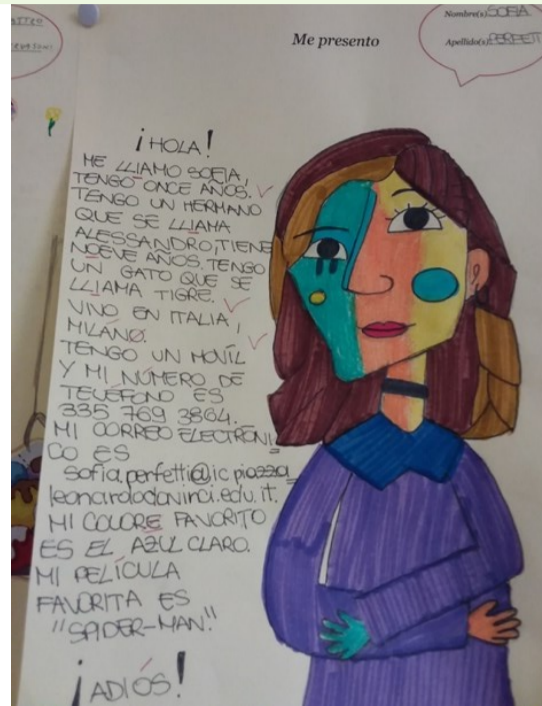 Me presento
Nombre(s) SOFIA
Apellido(s)
¡HOLA!
ME LLIAMO SOFIA,
TENGO ONCE AÑOS.
TENGO UN HERMANO
QUE SE LLIAMA
ALESSANDRO, TIENE
NOEVE AÑOS. TENGO
UN GATO QUE SE
LLIAMA TIGRE.
VIVO EN ITALIA,
MILANO.
TENGO UN MOVÍL
Y MI NÚMERO DE
TELÉFONO ES
335 769 3864.
MI CORREO ELECTRÓNI
CO ES
sofia.perfetti@ic piazza
leonardodavinci.edu.it.
MI COLORE FAVORITO
ES EL AZUL CLARO.
MI PELÍCULA
FAVORITA ES
"SPIDER-MAN"
¡ADIÓS!